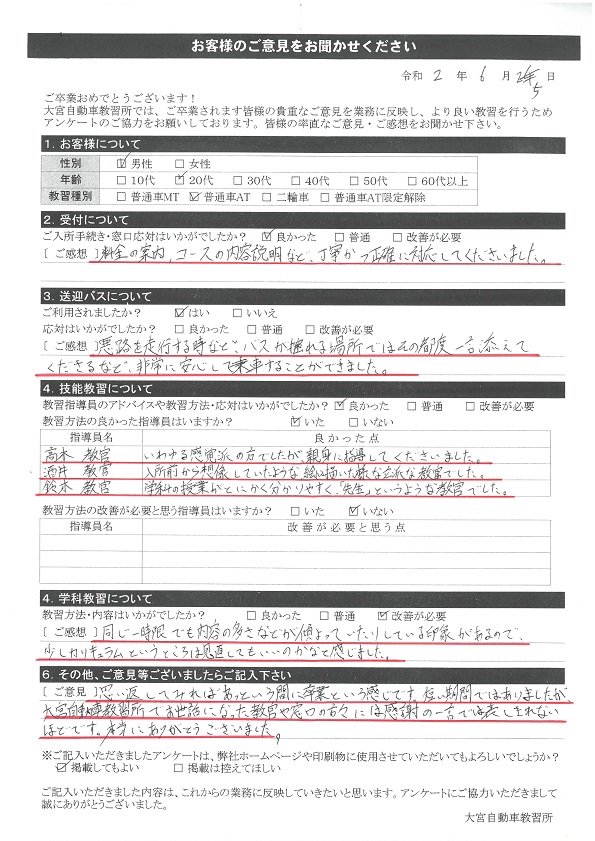 お客様のご意見をお聞かせください
令和 2 年 6 月 日
ご卒業おめでとうございます！
大宮自動車教習所では、ご卒業されます皆様の貴重なご意見を業務に反映し、より良い教習を行うため
アンケートのご協力をお願いしております。皆様の率直なご意見・ご感想をお聞かせ下さい。
1. お客様について
性別 ☑男性 □女性
年齢 □10代 ☑20代 □30代 □40代 □50代 □60代以上
教習種別 □普通車MT ☑普通車AT □二輪車 □普通車AT限定解除
2. 受付について
ご入所手続き・窓口応対はいかがでしたか？ ☑良かった □普通 □改善が必要
［ご感想］料金の案内，コースの内容説明など、丁寧かつ正確に対応してくださいました。
3. 送迎バスについて
ご利用されましたか？ ☑はい □いいえ
応対はいかがでしたか？ □良かった □普通 □改善が必要
［ご感想］悪路を走行する時など、バスが揺れる場所ではその都度一言添えて
くださるなど、非常に安心して乗車することができました。
4. 技能教習について
教習指導員のアドバイスや教習方法・応対はいかがでしたか？ ☑良かった □普通 □改善が必要
教習方法の良かった指導員はいますか？ ☑いた □いない
指導員名 良かった点
高木 教官 いわゆる感覚派の方でしたが、親身に指導してくださいました。
酒井 教官 入所前から想像していたような絵に描いた様な立派な教官でした。
鈴木 教官 学科の授業がとにかく分かりやすく、「先生」というような教官でした。
教習方法の改善が必要と思う指導員はいますか？ □いた ☑いない
指導員名 改善が必要と思う点
4. 学科教習について
教習方法・内容はいかがでしたか？ □良かった □普通 ☑改善が必要
［ご感想］同じ一時限でも内容の多さなどが偏よっていたりしている印象があるので、
少しカリキュラムというところは見直してもいいのかなと感じました。
6. その他、ご意見等ございましたらご記入下さい
［ご意見］思い返してみればあっという間に卒業という感じです。短い期間ではありましたが、
大宮自動車教習所でお世話になった教官や窓口の方々には感謝の一言では表しきれない
ほどです。本当にありがとうございました。
※ご記入いただきましたアンケートは、弊社ホームページや印刷物に使用させていただいてもよろしいでしょうか？
☑掲載してもよい □掲載は控えてほしい
ご記入いただきました内容は、これからの業務に反映していきたいと思います。アンケートにご協力いただきまして
誠にありがとうございました。
大宮自動車教習所